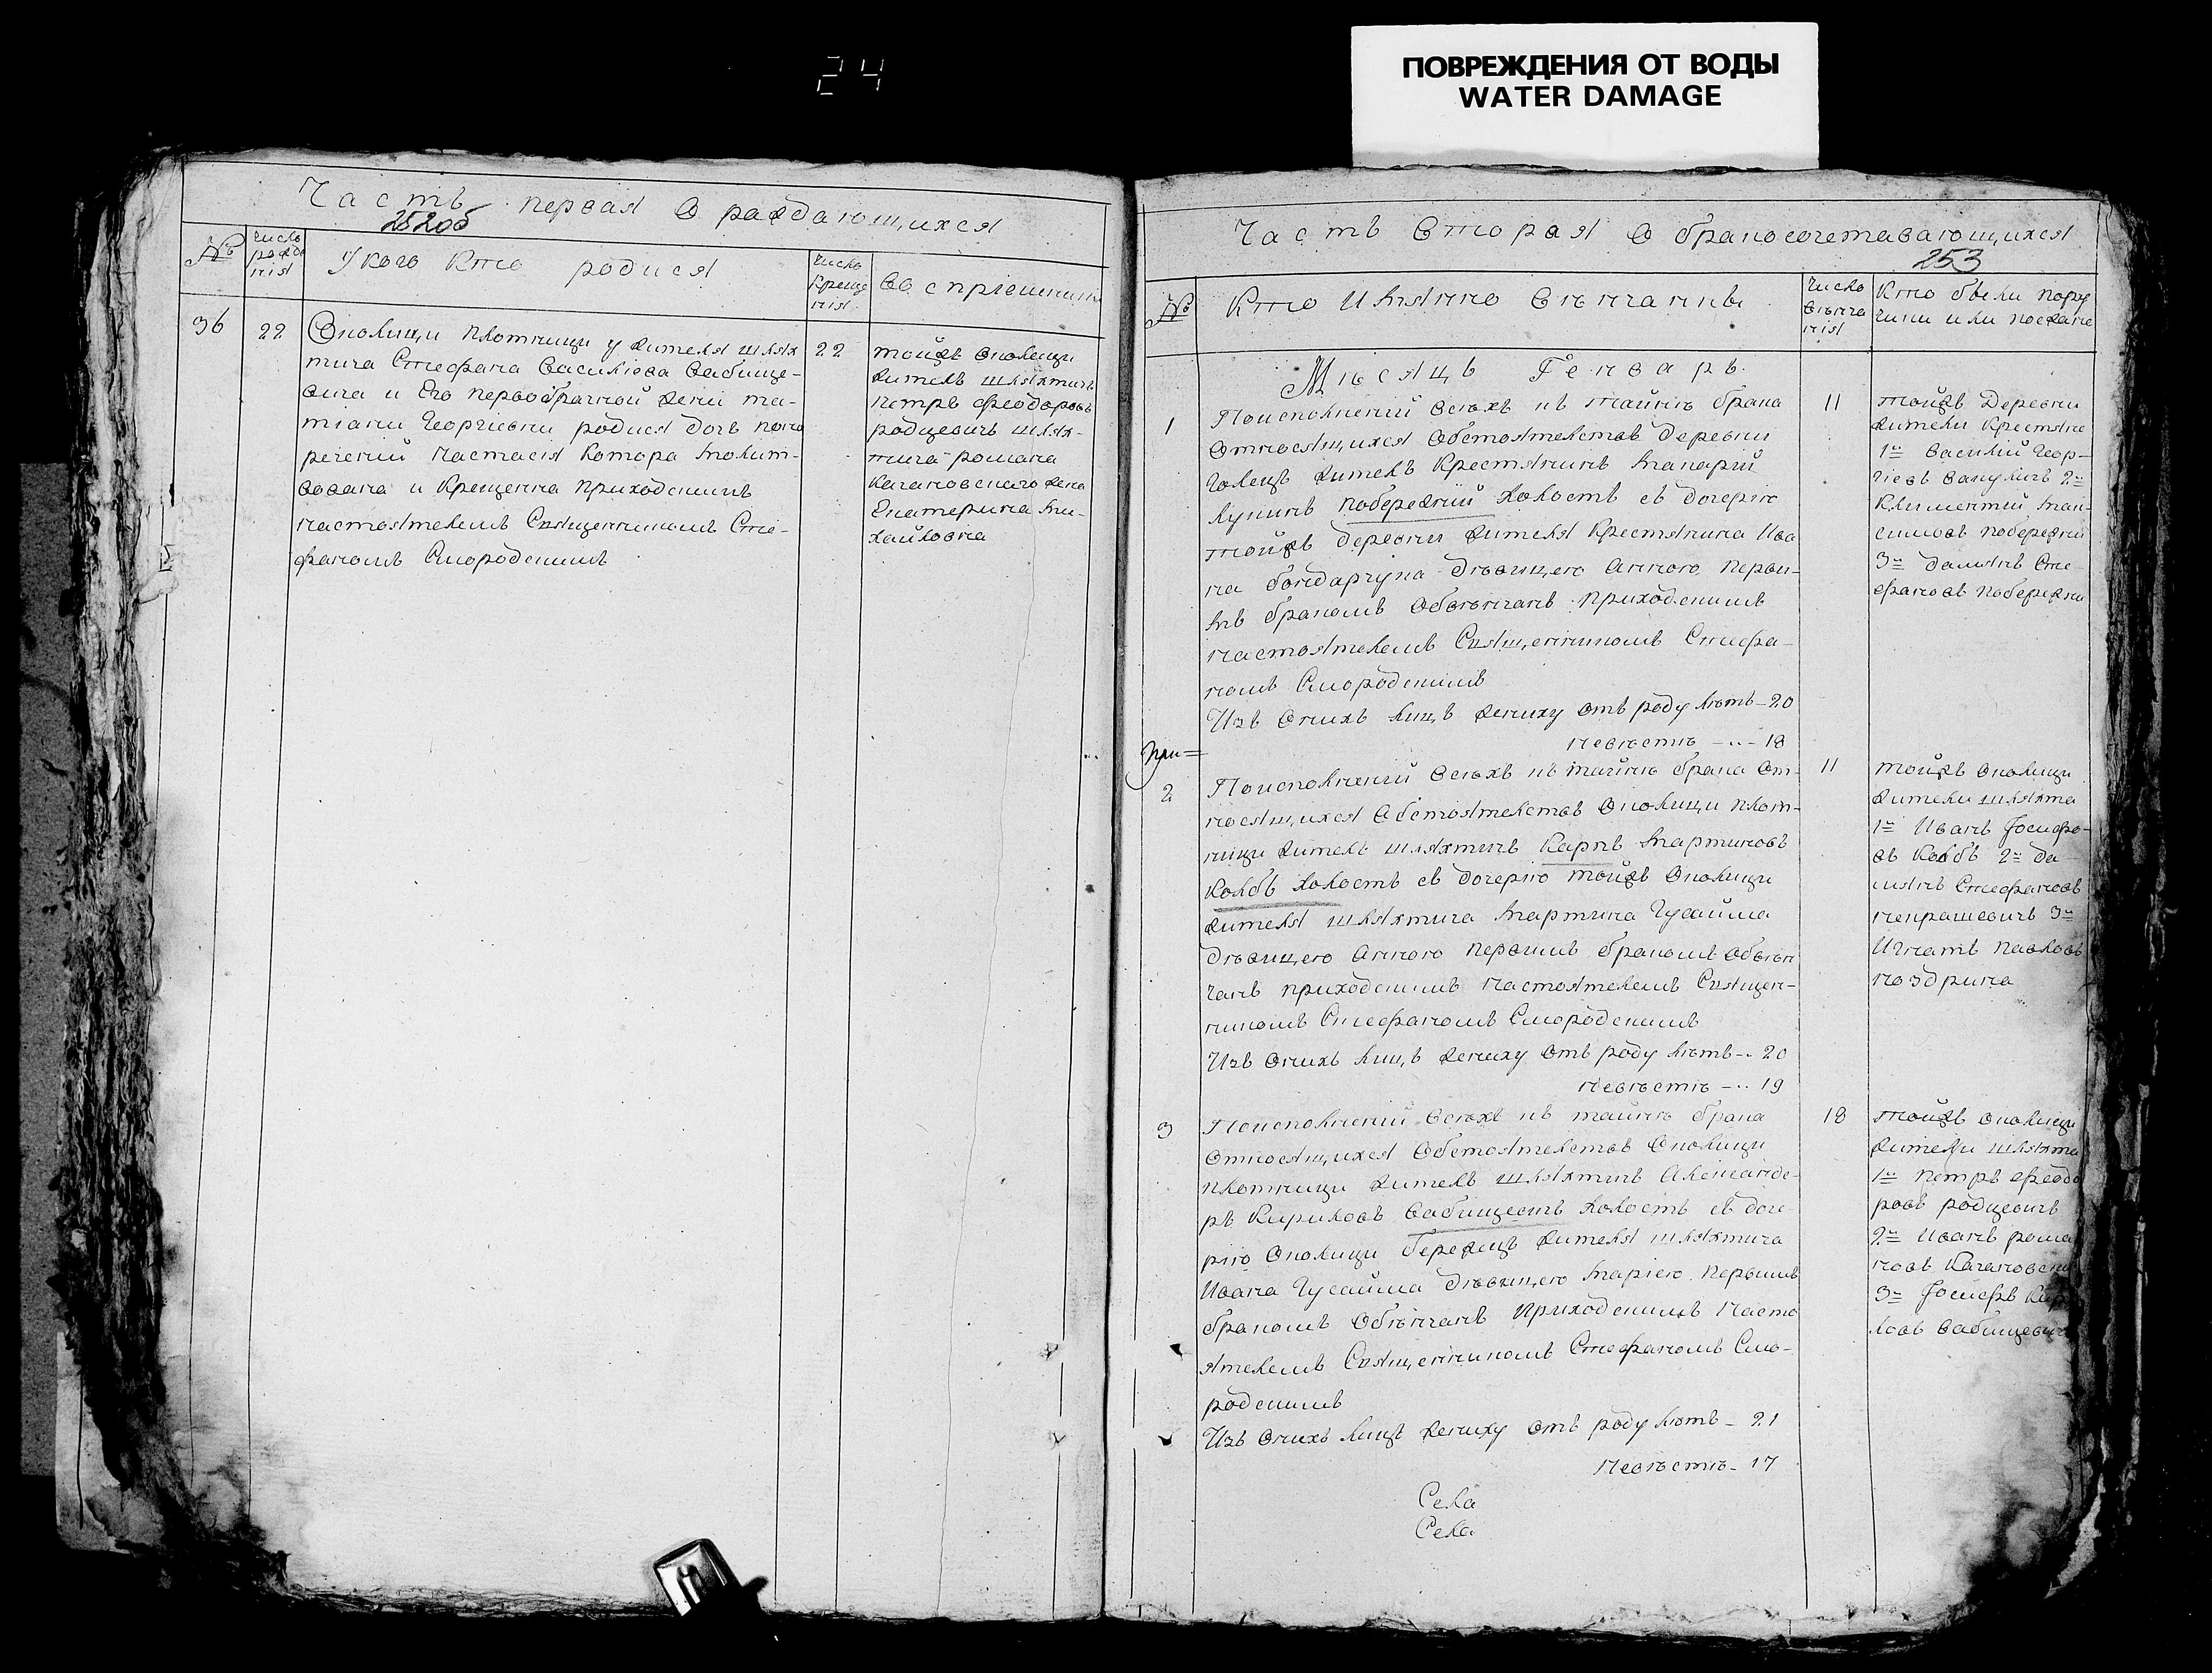 24
ПОВРЕЖДЕНИЯ ОТ ВОДЫ
WATER DAMAGE
Часть первая О раждающихся
252об
№
число рожде нія
У кого кто родися
число креще нія
Воспріемники
36
22
Околицы Плотницы у жителя шлях
тича Стефана Василіева Бабице-
вича и его первобрачной жени та-
тіани Георгіевни родися дочь наре
речений Настасія котора молит-
вована и крещенна приходскимъ
настоятелемъ Священникомъ Сте-
фаномъ Смородскимъ
22
тойжъ околицы
житель шляхтичъ
Петръ Феодоровъ
родцевичъ шлях-
тича романа
Качановского жена
Екатерина Ми-
хайловна
Часть Вторая О бракосочетавающихся
253
№
Кто именно венчанны
число венча нія
Кто были пору
чики или поезжане
Месяцъ Генваръ
1
По исполнений всехъ къ тайне брака
относящихся обстоятелствъ деревни
Голецъ житель крестянинъ Макарий
Лукинъ побережний холостъ съ дочерію
тойжъ деревни жителя крестянина Ива
на бондарчука девицею Анною перви-
мъ бракомъ обвенчанъ приходскимъ
настоятелемъ Священникомъ Стефа-
номъ Смородскимъ
Изъ оныхъ лицъ жениху отъ роду летъ - 20
невесте - .. - 18
11
тойжъ деревни
жители крестяне
1й Василий Геор-
гіевъ Ванукичъ 2й
Климентий Мак-
симовъ побережни
3й Даміянъ Сте
фановъ побережни
При=
2
По исполнений всехъ къ тайне брака от-
носящихся обстоятелствъ околицы Плот-
ницы житель шляхтичъ Карпъ Мартиновъ
Колбъ холостъ съ дочерію тойжъ околицы
жителя шляхтича Мартина Гусаима
девицею Анною первимъ бракомъ обвен
чанъ приходскимъ настоятелемъ Священ-
никомъ Стефаномъ Смородскимъ
Изъ оныхъ лицъ жениху отъ роду летъ - .. 20
невесте - .. 19
11
тойжъ околицы
жители шляхта
1й Иванъ Іосифо-
въ Колбъ 2й Да-
міянъ Стефановъ
некрашевичъ 3й
Игнатъ Павловъ
ноздрина
3
По исполнений всехъ къ тайне брака
относящихся обстоятелствъ околицы
Плотницы житель шляхтичъ Александе-
ръ Кириловъ Бабицевичъ холостъ съ доче-
рію околицы бережцъ жителя шляхтича
Ивана Гусаима девицею Маріею первимъ
бракомъ обвенчанъ приходскимъ насто
ятелемъ Священникомъ Стефаномъ Смо-
родскимъ
Изъ оныхъ лицъ жениху отъ роду летъ - 21
невесте - 17
18
тойжъ околицы
жители шляхта
1й Петръ Феодо
ровъ родцевичъ
2й Иванъ рома
новъ Качановски
3й Іосифъ Кири
ловъ Бабицевичъ
Села
Села